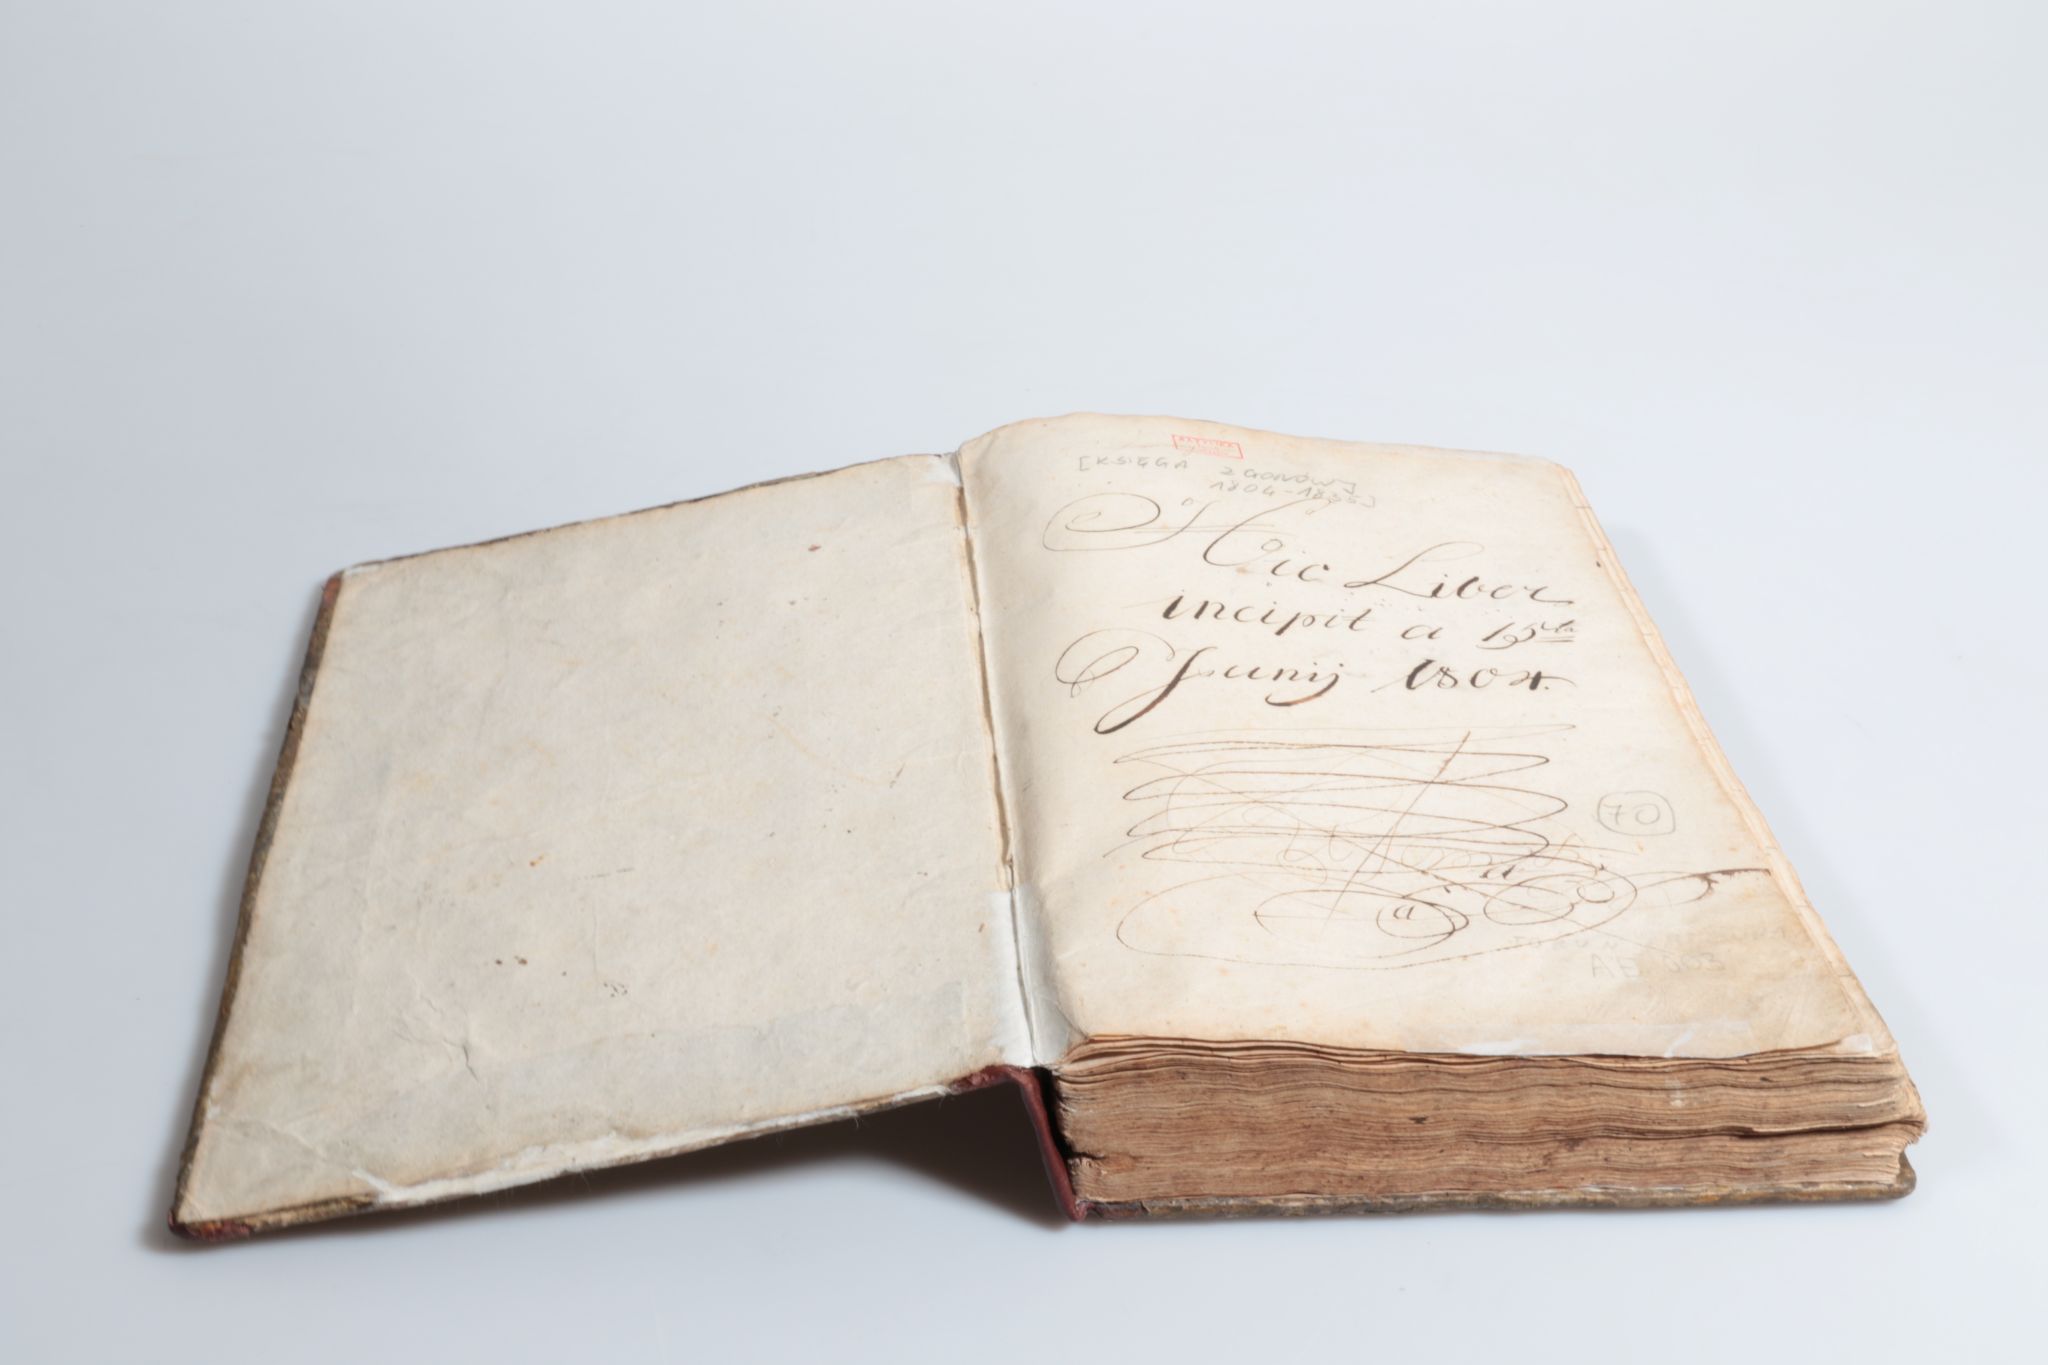 [KSIĘGA ZGONÓW]
1804-1835]
Hic Liber
incipit a 15ta
Junij 1804.
70
AE 003